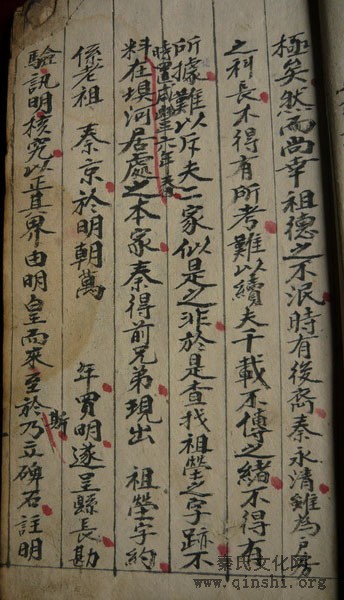 極矣然而尚幸祖德之不泯時有後裔秦永清雖為戶房
之科長不得有所考難以續夫千載不傳之緒不得有
所據難以斥夫二家似是之非於是查找祖塋之字跡不
時置咸豐三六年春
料在埧河居處之本家秦得前兄弟現出 祖塋字約
係老祖 秦京於明朝萬 年買明遂呈縣長勘
驗訊明核究以貴界由明皇而來至於斯乃立碑石註明
秦氏文化网
www.qinshi.org